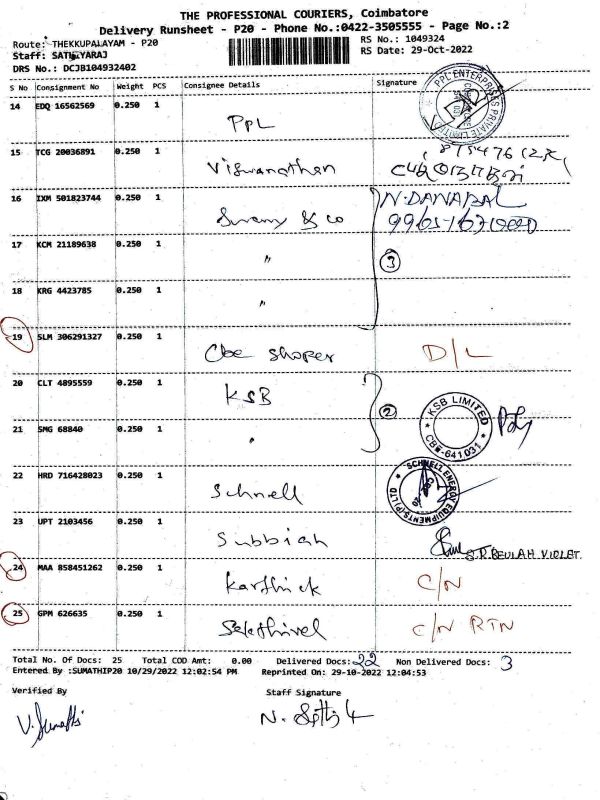 THE PROFESSIONAL COURIERS, Coimbatore
Delivery Runsheet - P20 - Phone No.:0422-3505555 - Page No.:2
Route: THEKKUPALAYAM - P20
RS No.: 1049324
Staff: SATHYARAJ
RS Date: 29-Oct-2022
DRS No.: DCJB104932402
S No Consignment No Weight PCS Consignee Details Signature
14 EDQ 16562569 0.250 1 PPL
PPL ENTERPRISES PRIVATE LIMITED
15 TCG 20036891 0.250 1 Viswanathan
16 IXM 501823744 0.250 1 Swamy & Co N.DANAPAL
17 KCM 21189638 0.250 1 " 3
18 KRG 4423785 0.250 1 "
19 SLM 306291327 0.250 1 Cbe shoper D/L
20 CLT 4895559 0.250 1 KSB 2
KSB LIMITED
CBE-641031
21 SMG 68840 0.250 1 "
22 HRD 716428023 0.250 1 Schnell
SCHNELL ENERGY EQUIPMENTS (P) LTD
23 UPT 2103456 0.250 1 Subbiah S.R.BEULAH VIOLET.
24 MAA 858451262 0.250 1 Karthick C/N
25 GPM 626635 0.250 1 Selathivel C/N RTN
Total No. Of Docs: 25 Total COD Amt: 0.00 Delivered Docs: 22 Non Delivered Docs: 3
Entered By :SUMATHIP20 10/29/2022 12:02:54 PM Reprinted On: 29-10-2022 12:04:53
Verified By Staff Signature
V. Sumathi